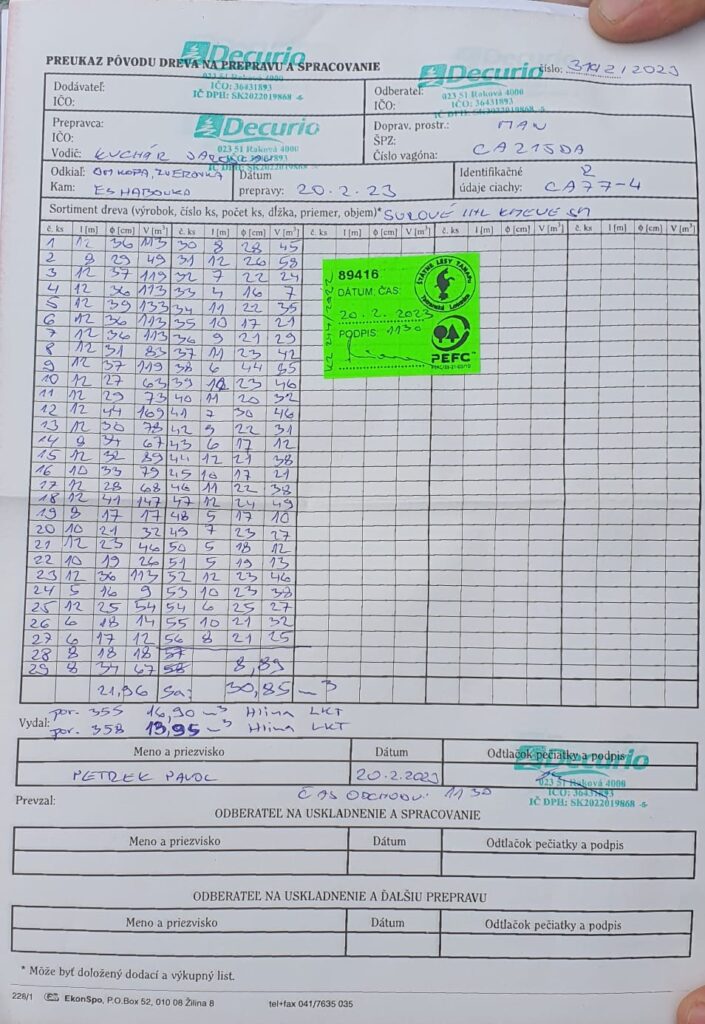 Decurio
PREUKAZ PÔVODU DREVA NA PREPRAVU A SPRACOVANIE
číslo: 31/2/2023
023 51 Raková 4000
IČO: 36431893
IČ DPH: SK2022019868 -6-
Decurio
023 51 Raková 4000
IČO: 36431893
IČ DPH: SK2022019868 -6-
Dodávateľ:
IČO:
Odberateľ:
IČO:
Decurio
023 51 Raková 4000
IČO: 36431893
IČ DPH: SK2022019868 -6-
Prepravca:
IČO:
Vodič: KUCHÁR
Doprav. prostr.: MAN
ŠPZ:
Číslo vagóna: CA215DA
Odkiaľ: OM KOPA, ZVEROVKA
Kam: ES HABOVKA
Dátum
prepravy: 20.2.23
Identifikačné 2
údaje ciachy: CA77-4
Sortiment dreva (výrobok, číslo ks, počet ks, dĺžka, priemer, objem)* SUROVÉ IHL KMEVE SM
č. ks l [m] ϕ [cm] V [m³] č. ks l [m] ϕ [cm] V [m³] č. ks l [m] ϕ [cm] V [m³] č. ks l [m] ϕ [cm] V [m³] č. ks l [m] ϕ [cm] V [m³]
1 12 36 113 30 8 28 45
2 9 29 49 31 12 26 58
3 12 37 119 32 7 22 24
4 12 36 113 33 4 16 7
5 12 39 133 34 11 22 35
6 12 36 113 35 10 17 21
7 12 36 113 36 9 21 29
8 12 31 83 37 11 23 42
9 12 37 119 38 6 44 85
10 12 27 63 39 12 23 46
11 12 29 73 40 11 20 32
12 12 44 169 41 7 30 46
13 12 30 78 42 9 22 31
14 8 34 67 43 6 17 12
15 12 32 89 44 12 21 38
16 10 33 79 45 10 17 21
17 12 28 68 46 11 22 38
18 12 41 147 47 12 24 49
19 8 17 17 48 5 17 10
20 10 21 32 49 7 23 27
21 12 23 46 50 5 18 12
22 10 19 26 51 5 19 13
23 12 36 113 52 12 23 46
24 5 16 9 53 10 23 38
25 12 25 54 54 6 25 27
26 6 18 14 55 10 21 32
27 6 17 12 56 8 21 25
28 8 18 18 57
29 8 34 67 58 8,89
21,96 Sa: 30,85 m³
89416
DÁTUM, ČAS:
20.2.2023
PODPIS: 1130
ŠTÁTNE LESY TANAPU
Tatranská Lomnica
PEFC™
Vydal: por. 355 16,90 m³ Hlina LKT
por. 358 13,95 m³ Hlina LKT
Meno a priezvisko Dátum Odtlačok pečiatky a podpis
PETREK PAVOL 20.2.2023
Decurio
023 51 Raková 4000
IČO: 36431893
IČ DPH: SK2022019868 -6-
Prevzal:
ČAS ODCHODU: 1130
ODBERATEĽ NA USKLADNENIE A SPRACOVANIE
Meno a priezvisko Dátum Odtlačok pečiatky a podpis
ODBERATEĽ NA USKLADNENIE A ĎALŠIU PREPRAVU
Meno a priezvisko Dátum Odtlačok pečiatky a podpis
* Môže byť doložený dodací a výkupný list.
226/1 EkonSpo, P.O.Box 52, 010 08 Žilina 8 tel+fax 041/7635 035